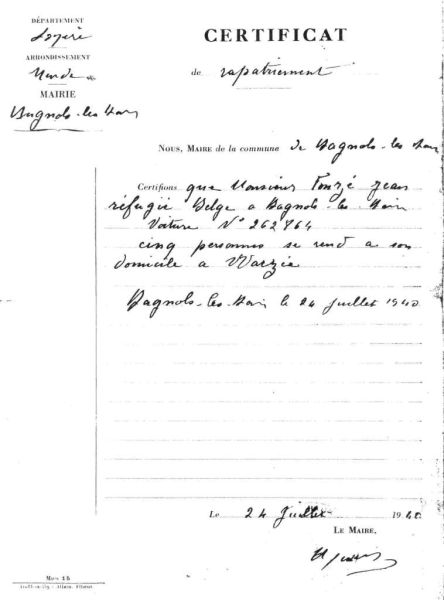 DÉPARTEMENT
Lozère
ARRONDISSEMENT
Mende
MAIRIE
Bagnols-les-Bains
CERTIFICAT
de rapatriement
NOUS, MAIRE de la commune de Bagnols-les-Bains
Certifions que Monsieur Fonzé Jean
réfugié Belge a Bagnols-les-Bain
Voiture N° 262764
cinq personnes se rend a son
domicile a Warzée
Bagnols-les-Bain le 24 juillet 1940
Le 24 Juillet 1940.
LE MAIRE,